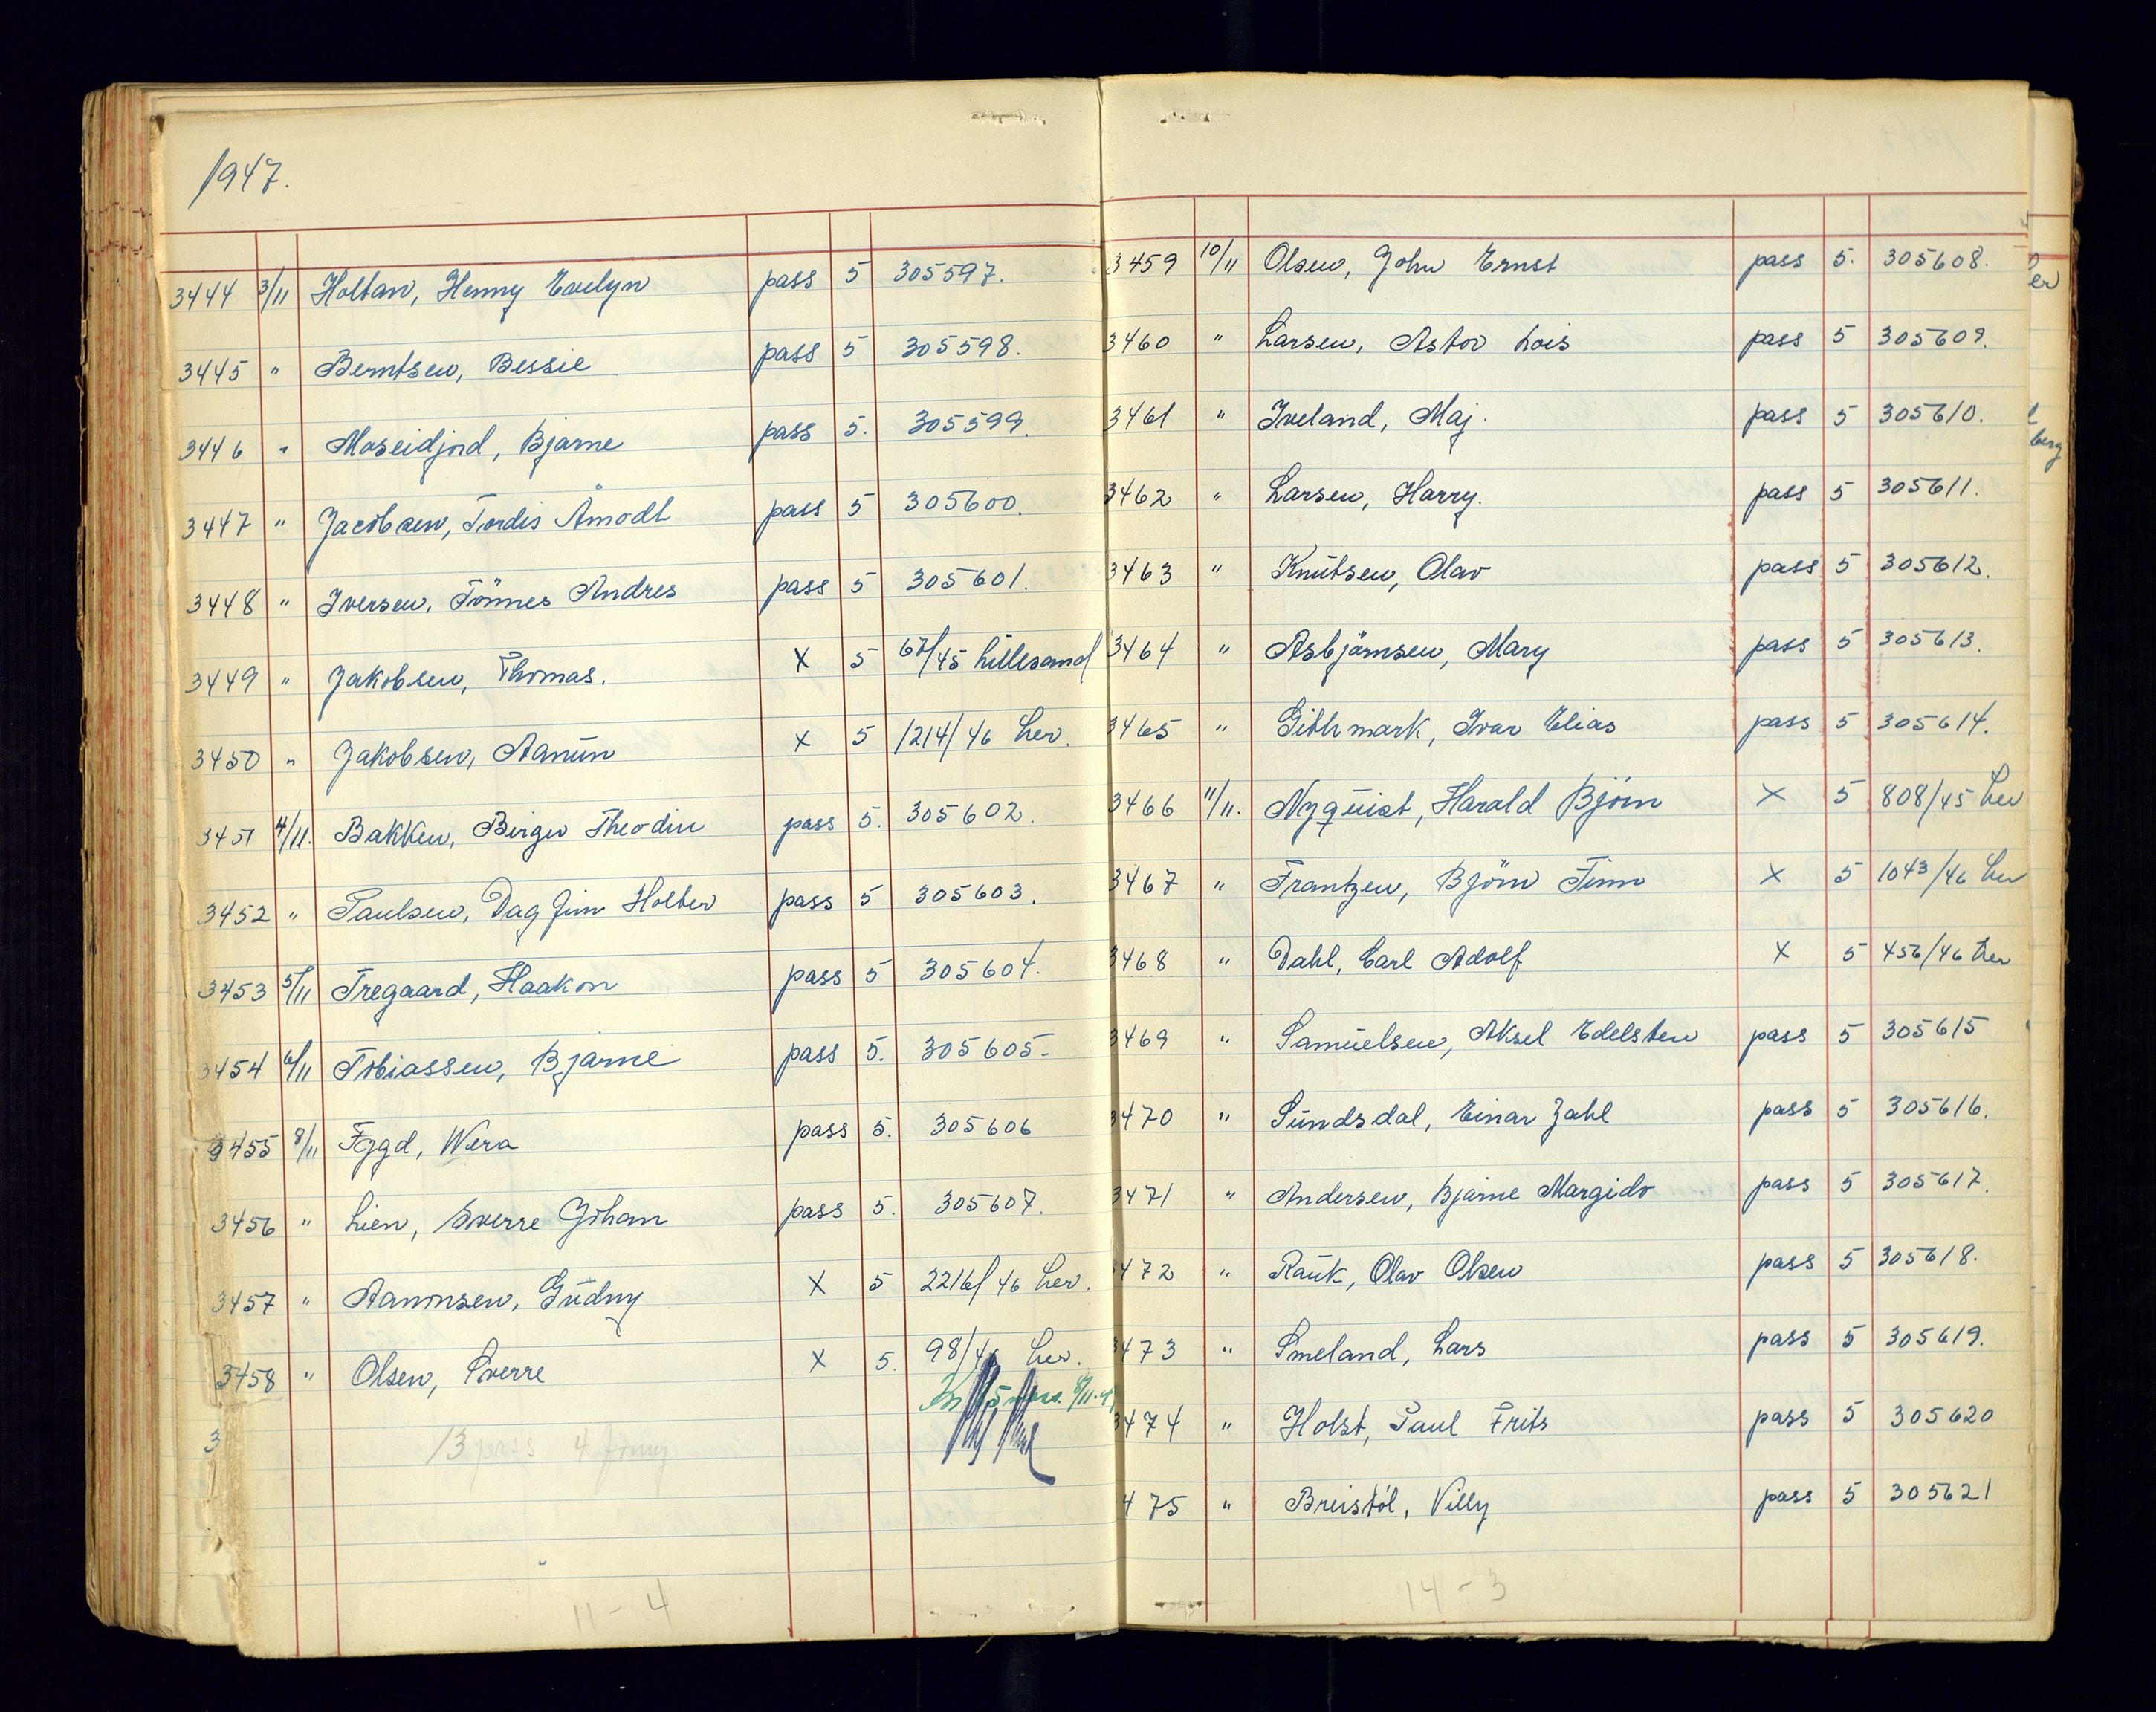 1947.
3444 3/11 Holtan, Henny Evelyn pass 5 305597.
3445 " Berntsen, Bessie pass 5 305598.
3446 " Moseidjord, Bjarne pass 5. 305599.
3447 " Jacobsen, Tordis Åmodt pass 5 305600.
3448 " Iversen, Tönnes Andres pass 5 305601.
3449 " Jakobsen, Thomas. X 5 67/45 Lillesand
3450 " Jakobsen, Aanūn X 5 1214/46 her.
3451 4/11. Bakken, Birger Theodin pass 5. 305602.
3452 " Paulsen, Dag Finn Holter pass 5 305603.
3453 5/11 Tregaard, Haakon pass 5 305604.
3454 6/11 Tobiassen, Bjarne pass 5. 305605.
3455 8/11 Fygd, Wera pass 5. 305606
3456 " Lien, Sverre Johan pass 5. 305607.
3457 " Aanonsen, Gūdny X 5 2216/46 her.
3458 " Olsen, Sverre X 5. 98/46 her.
8/11.47
3
13 pass 4
11 - 4
3459 10/11 Olsen, John Ernst pass 5. 305608.
3460 " Larsen, Astor Lois pass 5 305609.
3461 " Iveland, Maj. pass 5 305610.
3462 " Larsen, Harry. pass 5 305611.
3463 " Knūtsen, Olav pass 5 305612.
3464 " Asbjörnsen, Mary pass 5 305613.
3465 " Githmark, Ivar Elias pass 5 305614.
3466 11/11. Nyqūist, Harald Björn X 5 808/45 her
3467 " Frantzen, Björn Finn X 5 1043/46 her
3468 " Dahl, Carl Adolf X 5 456/46 her
3469 " Samūelsen, Aksel Edelsten pass 5 305615
3470 " Sūndsdal, Einar Zahl pass 5 305616.
3471 " Andersen, Bjarne Margido pass 5 305617.
472 " Raūk, Olav Olsen pass 5 305618.
473 " Smeland, Lars pass 5 305619.
3474 " Holst, Paul Frits pass 5 305620
475 " Breistöl, Villy pass 5 305621
14 - 3
er
berg